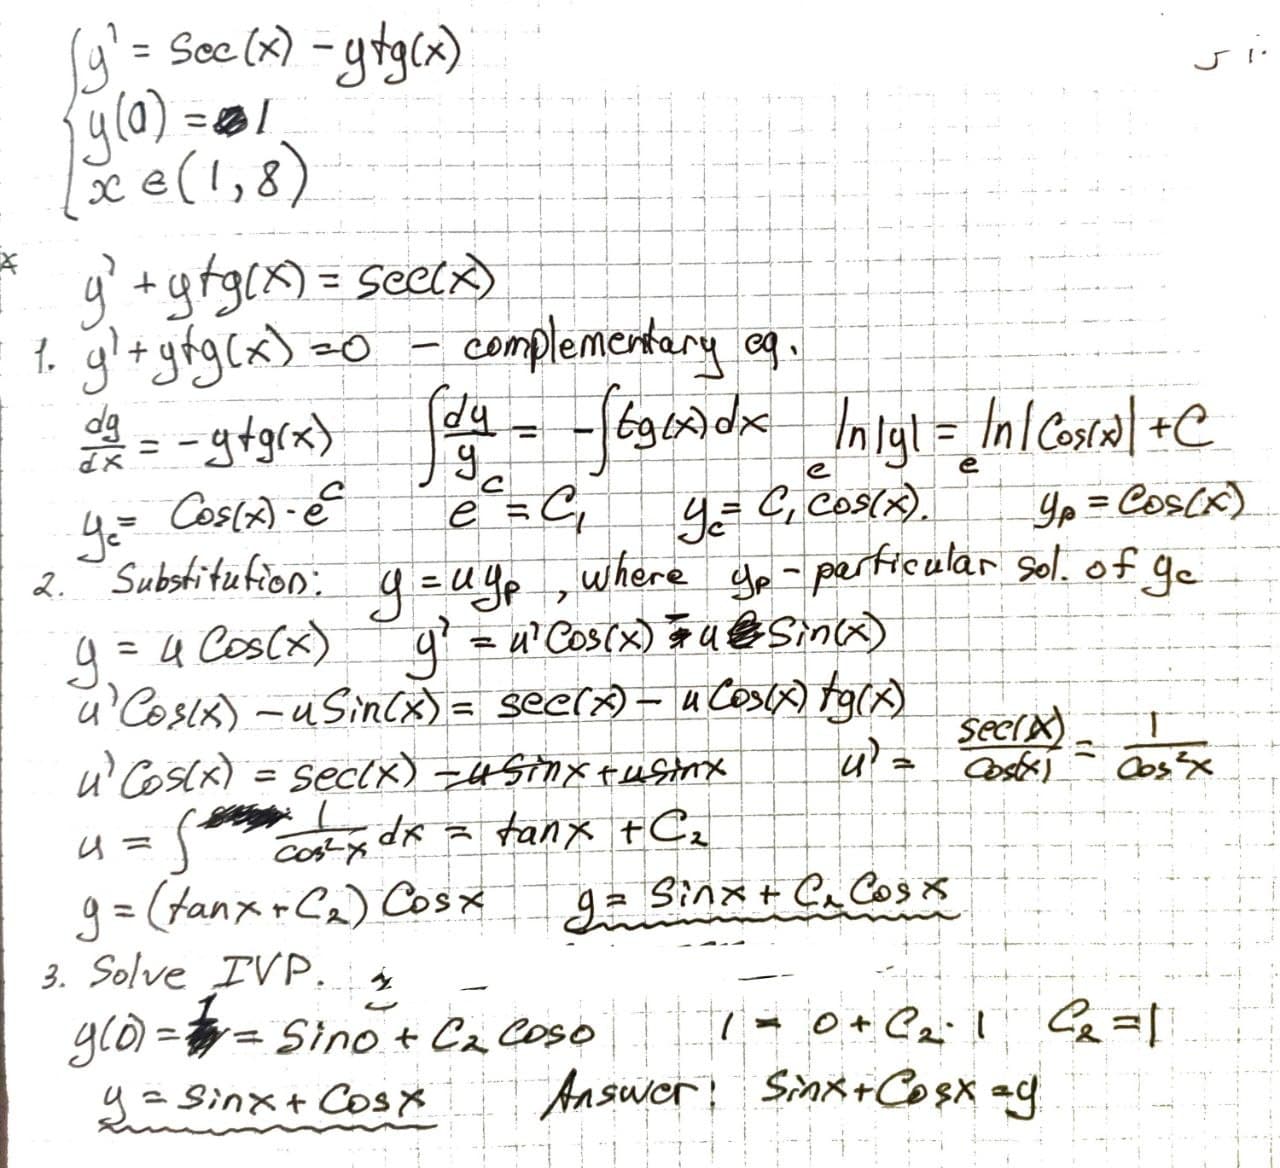 y' = Sec(x) - ytg(x)
y(0) = 1
x ∈ (1, 8)
y' + ytg(x) = sec(x)
1. y' + ytg(x) = 0 - complementary eq.
dy/dx = - ytg(x) ∫ dy/y = - ∫ tg(x) dx e^ln|y| = e^ln|Cos(x)| + C
y_c = Cos(x) · e^C e^C = C₁ y_c = C₁ cos(x). y_p = Cos(x)
2. Substitution: y = u y_p, where y_p - particular sol. of y_c
y = u Cos(x) y' = u' Cos(x) - u Sin(x)
u' Cos(x) - u Sin(x) = sec(x) - u Cos(x) tg(x)
u' Cos(x) = sec(x) - u Sinx + u sinx u' = sec(x)/Cos(x) = 1/Cos²x
u = ∫ 1/cos²x dx = tanx + C₂
y = (tanx + C₂) Cosx y = Sinx + C₂ Cosx
3. Solve IVP.
y(0) = 1 = Sin0 + C₂ Cos0 1 = 0 + C₂ · 1 C₂ = 1
y = Sinx + Cosx Answer: Sinx + Cosx = y